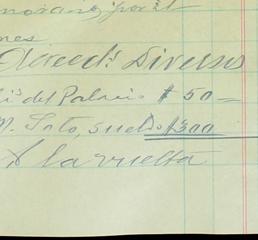 por el
nes
Acreeds Diversos
del Palacio $ 50 —
M. Soto, sueldo $300
A la vuelta